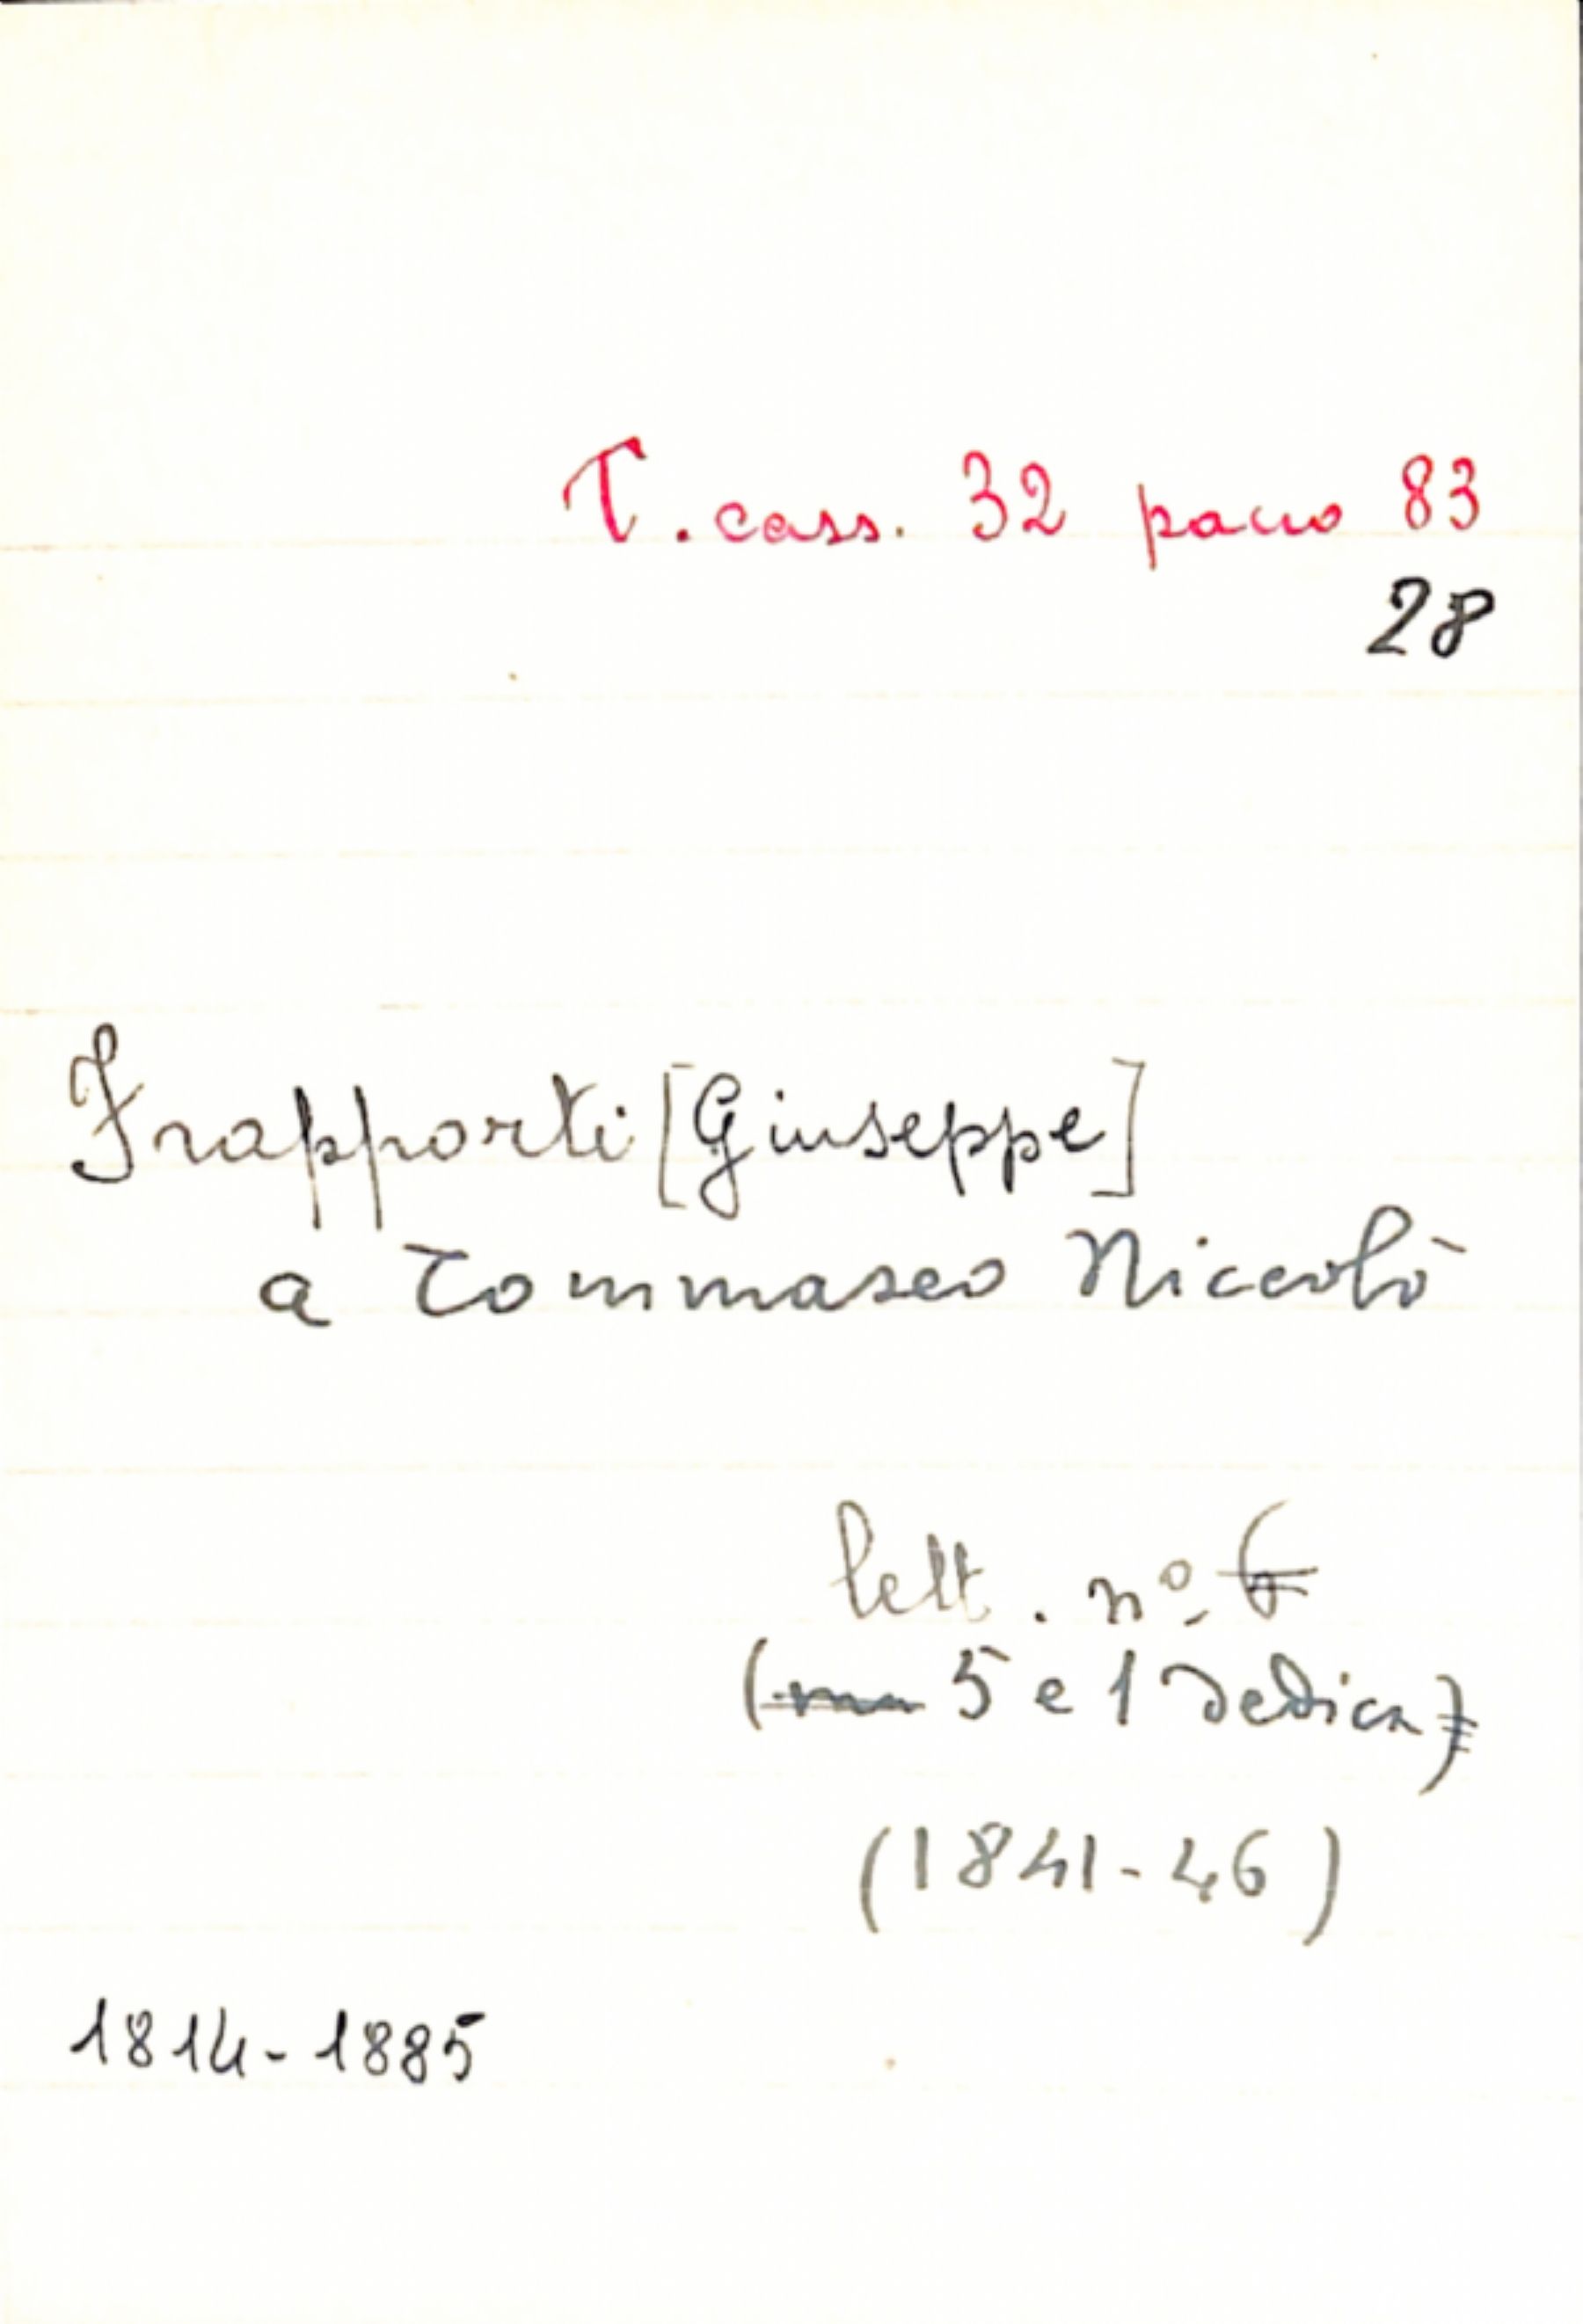 T. cass. 32 pacco 83
28
Frapporti [Giuseppe]
a Tommaseo Niccolò
lett. nº 6
( 5 e 1 dedica)
(1841-46)
1814-1885